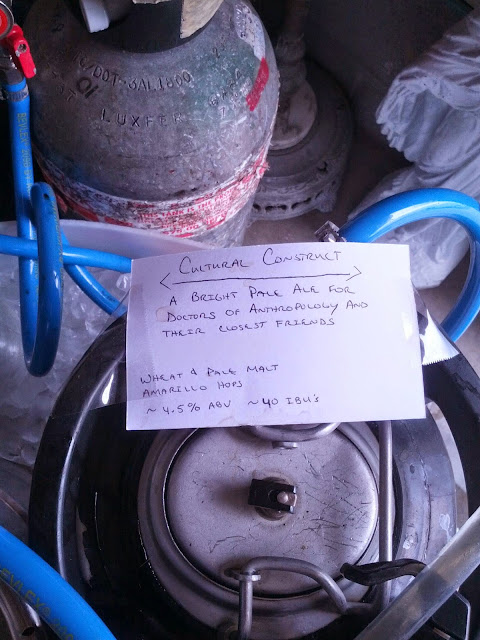 DOT-3AL1800
LUXFER
CULTURAL CONSTRUCT
A BRIGHT PALE ALE FOR
DOCTORS OF ANTHROPOLOGY AND
THEIR CLOSEST FRIENDS
WHEAT & PALE MALT
AMARILLO HOPS
~ 4.5% ABV ~ 40 IBU's